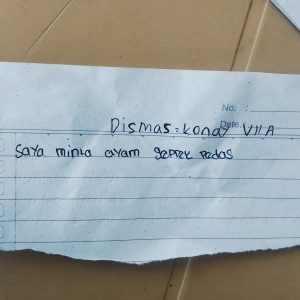 No. :
Date
Dismas = konay VII A
saya minta ayam geprek pedas